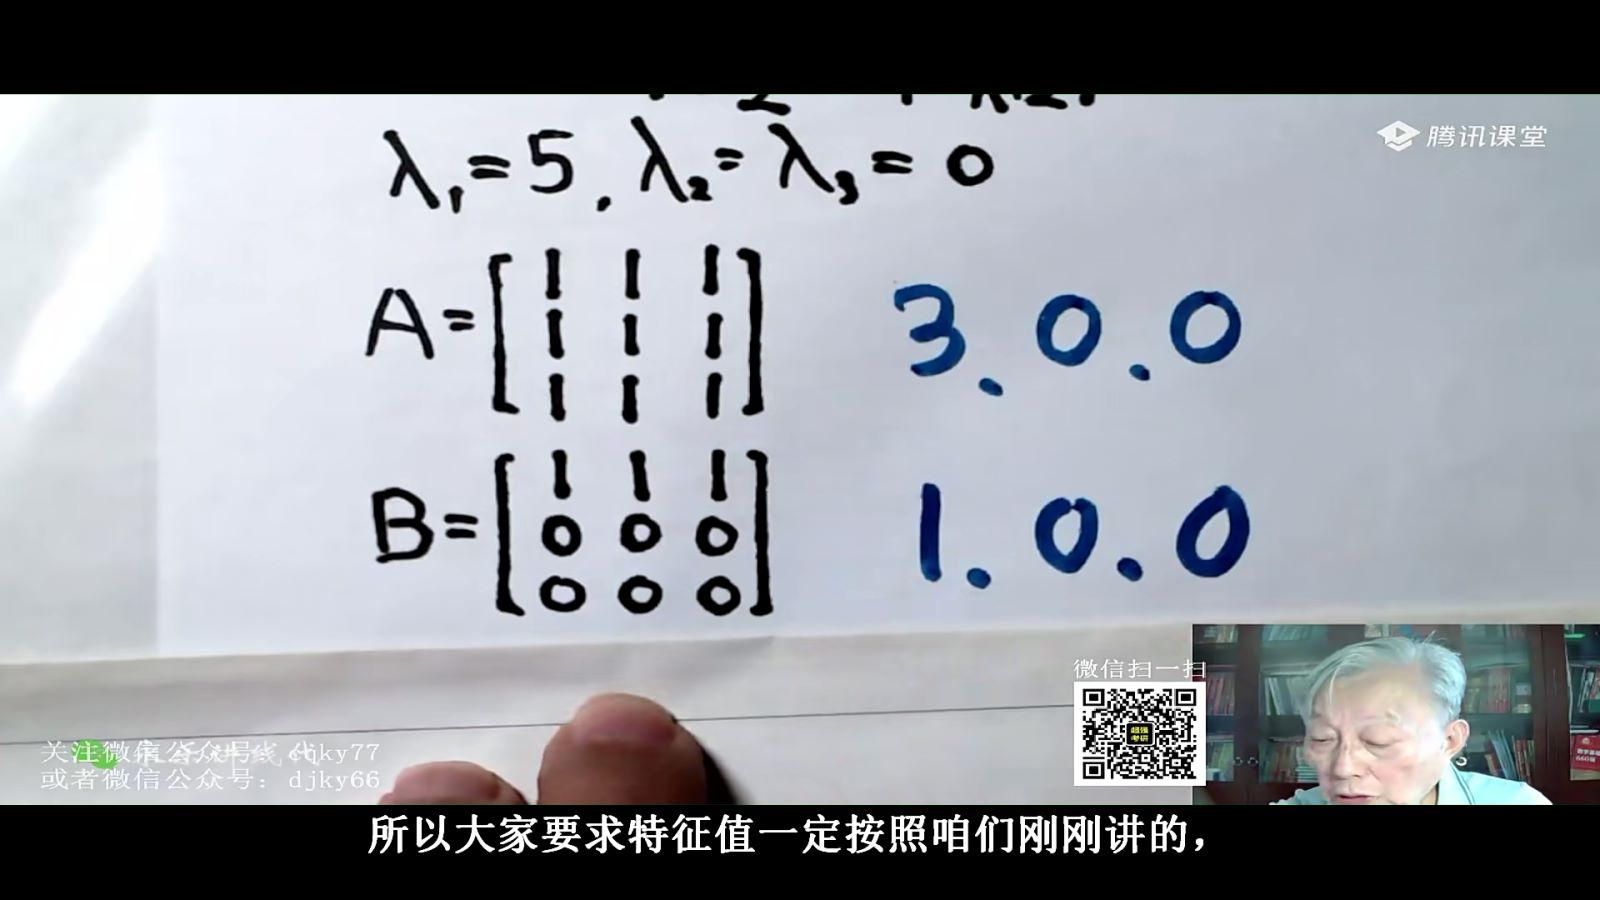 腾讯课堂
λ₁=5.λ₂=λ₃=0
A=[1 1 1
1 1 1
1 1 1]
3.0.0
B=[1 1 1
0 0 0
0 0 0]
1.0.0
微信扫一扫
超强
考研
关注微信公众号: cqky77
或者微信公众号: djky66
所以大家要求特征值一定按照咱们刚刚讲的，